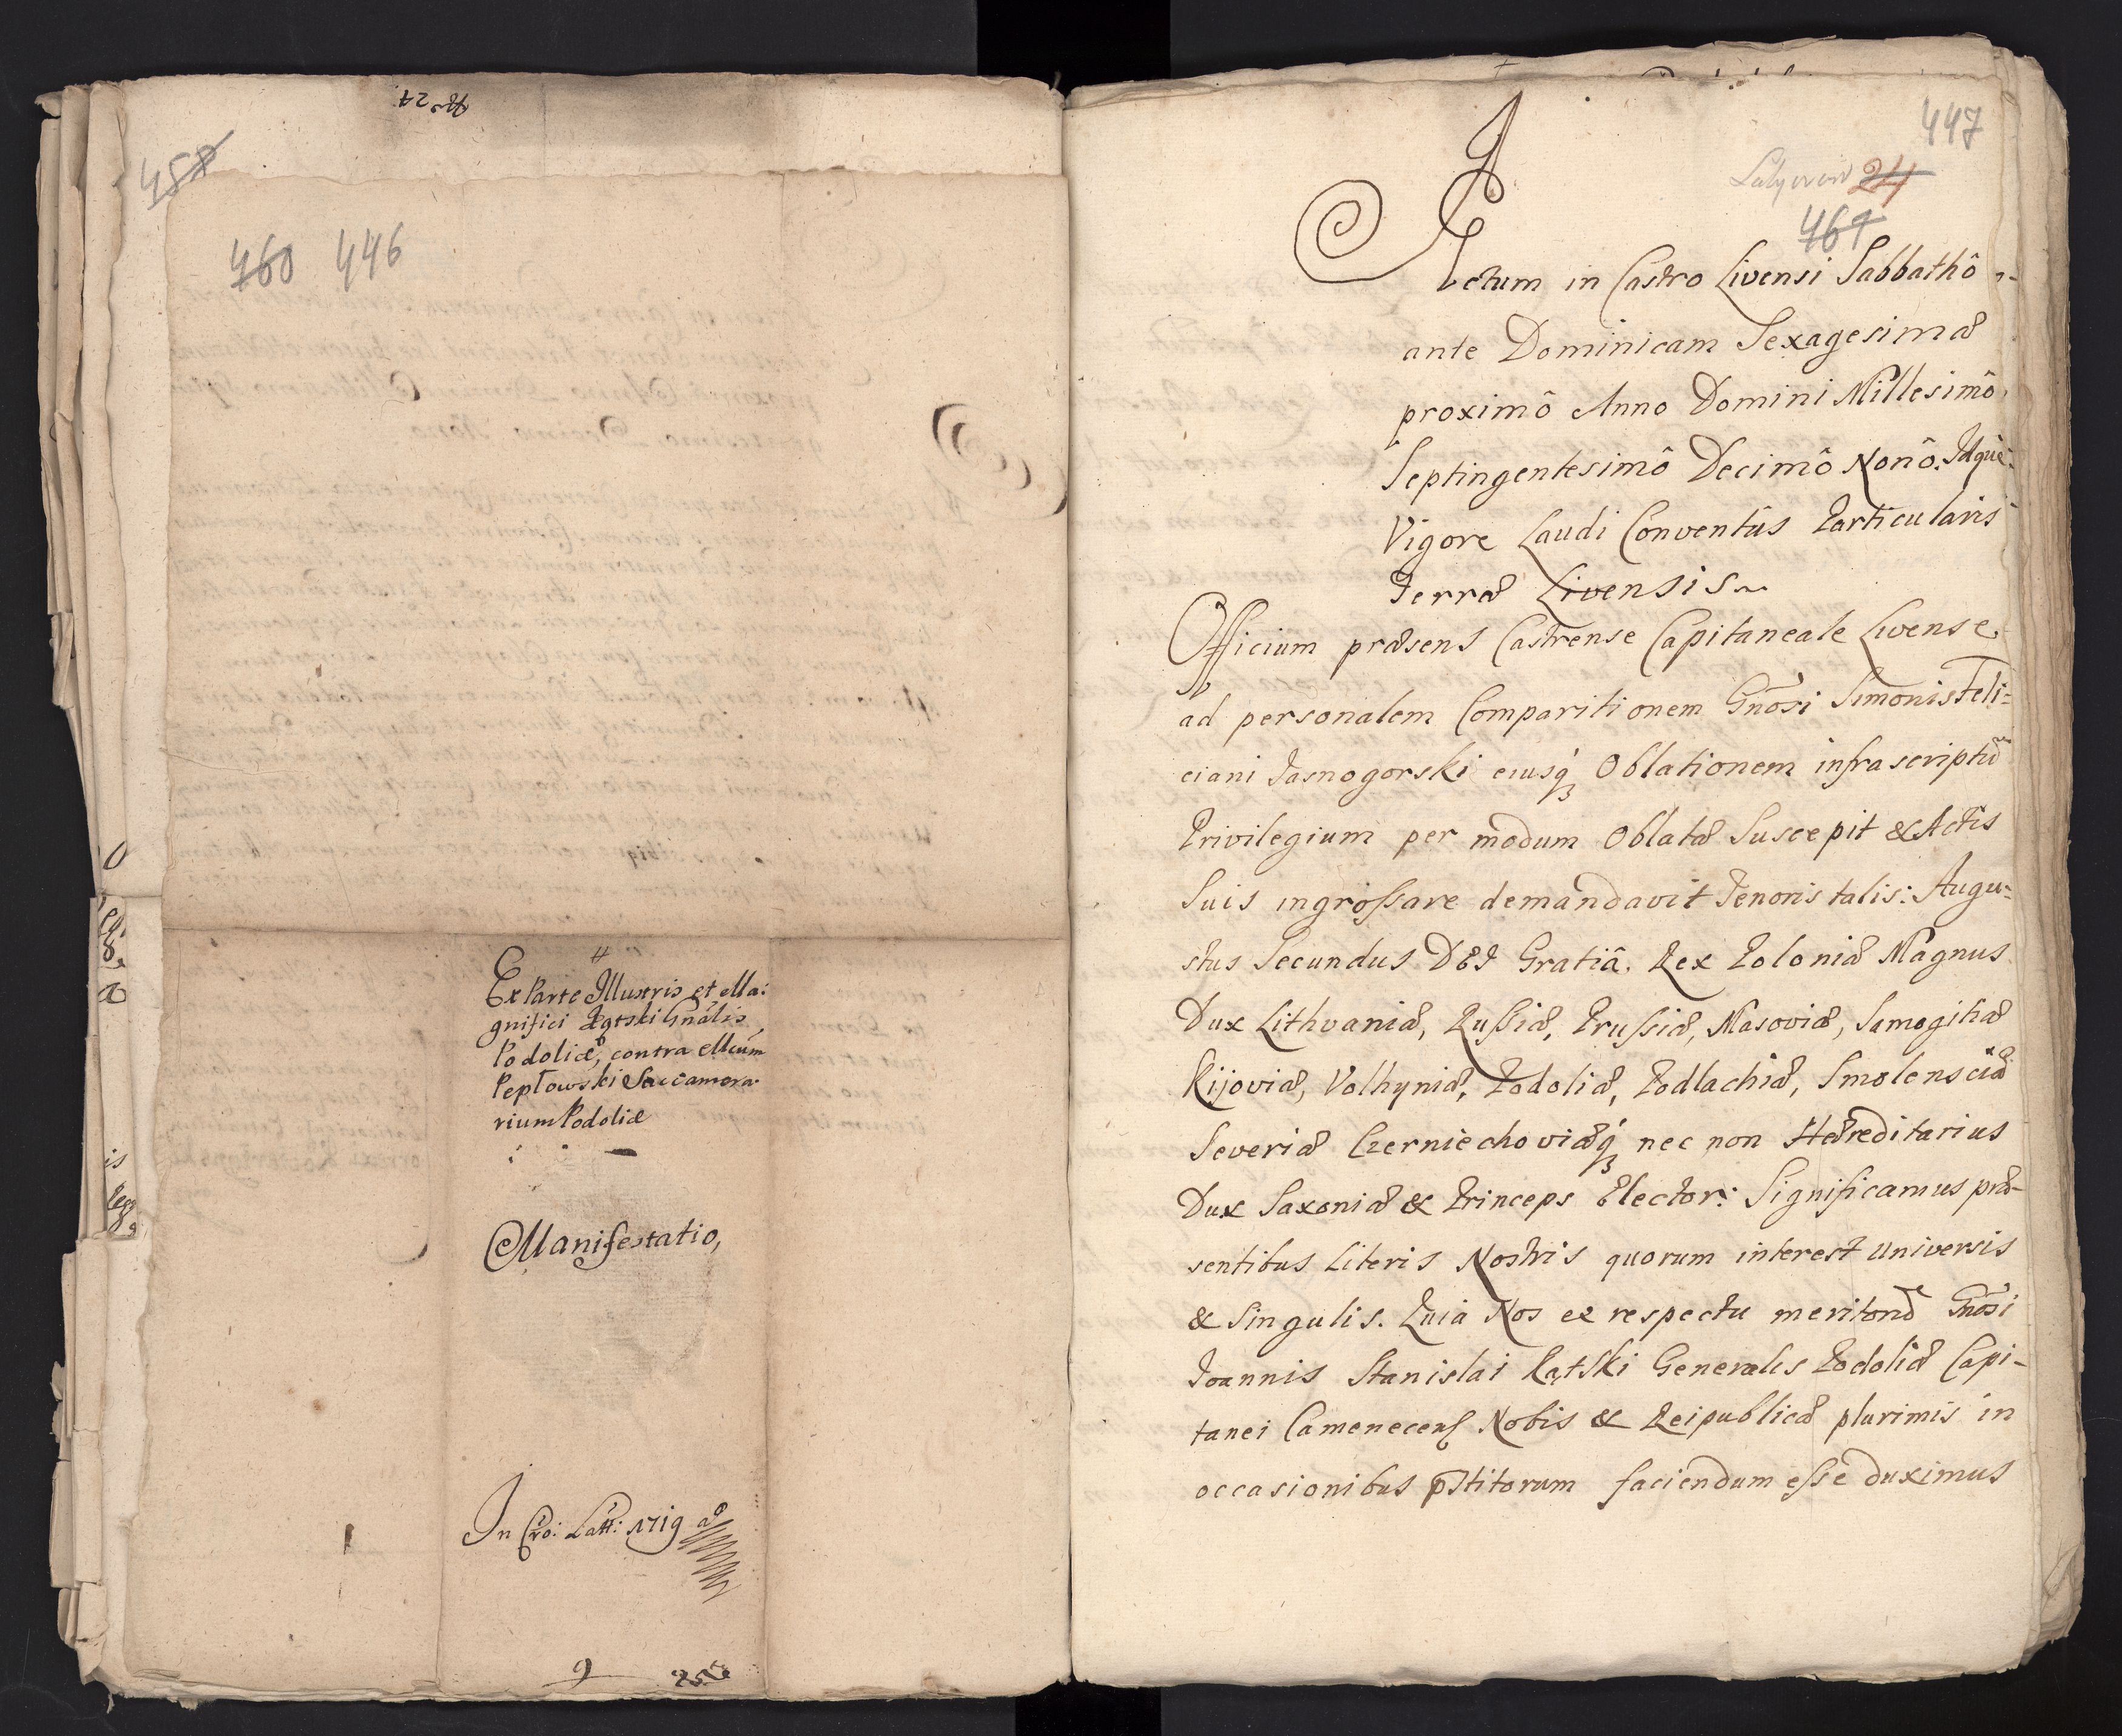 No 24
458
460 446
Ex Parte Illustris et Ma:
gnifici Kątski Gnâlis
Podoliæ, contra Mcum
Pepłowski Succamera
rium Podoliæ
Manifestatio,
In Cro: Latt: 1719
9
447
Latyczow 24
461
Actum in Castro Livensi Sabbathô
ante Dominicam Sexagesimæ
proximô Anno Domini Millesimô
Septingentesimô Decimô Nonô. Idque
Vigore Laudi Conventûs Particularis
Terræ Livensis
Officium præsens Castrense Capitaneale Livense
ad personalem Comparitionem Gnosi Simonis Feli=
ciani Jasnogorski eiusq3 Oblationem infrascriptũ
Privilegium per modum Oblatæ Suscepit & Actis
Suis ingrossare demandavit Tenoris talis: Augu=
stus Secundus DEI Gratiâ. Rex Poloniæ Magnus
Dux Lithvaniæ, Russiæ, Prussiæ, Masoviæ, Samogitiæ
Kijoviæ, Volhyniæ, Podoliæ, Podlachiæ, Smolensciæ
Severiæ Czerniechoviæq3 nec non Hæreditarius
Dux Saxoniæ & Princeps Elector: Significamus præ-
sentibus Literis Nostris quorum interest Universis
& Singulis. Quia Nos ex respectu meritorũ Gnosi
Joannis Stanislai Kątski Generalis Podoliæ Capi-
tanei Camenecens Nobis & Reipublicæ plurimis in
occasionibus p̄stitorum faciendum esse duximus